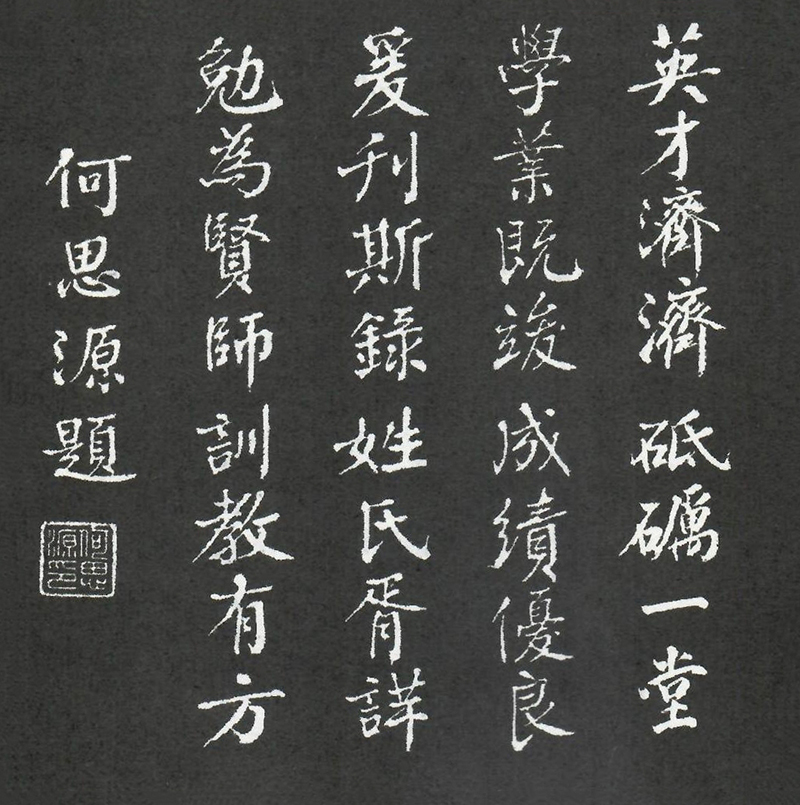 英才濟濟砥礪一堂
學業既竣成績優良
爰刊斯錄姓氏胥詳
勉為賢師訓教有方
何思源題
何思源印